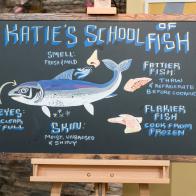 KATIE'S SCHOOL OF FISH
SMELL:
FRESH & MILD
FATTIER FISH:
THAW & REFRIGERATE
BEFORE COOKING
EYES:
CLEAR,
FULL
SKIN:
MOIST, UNBRUISED
& SHINY
FLAKIER FISH:
COOK FROM
FROZEN